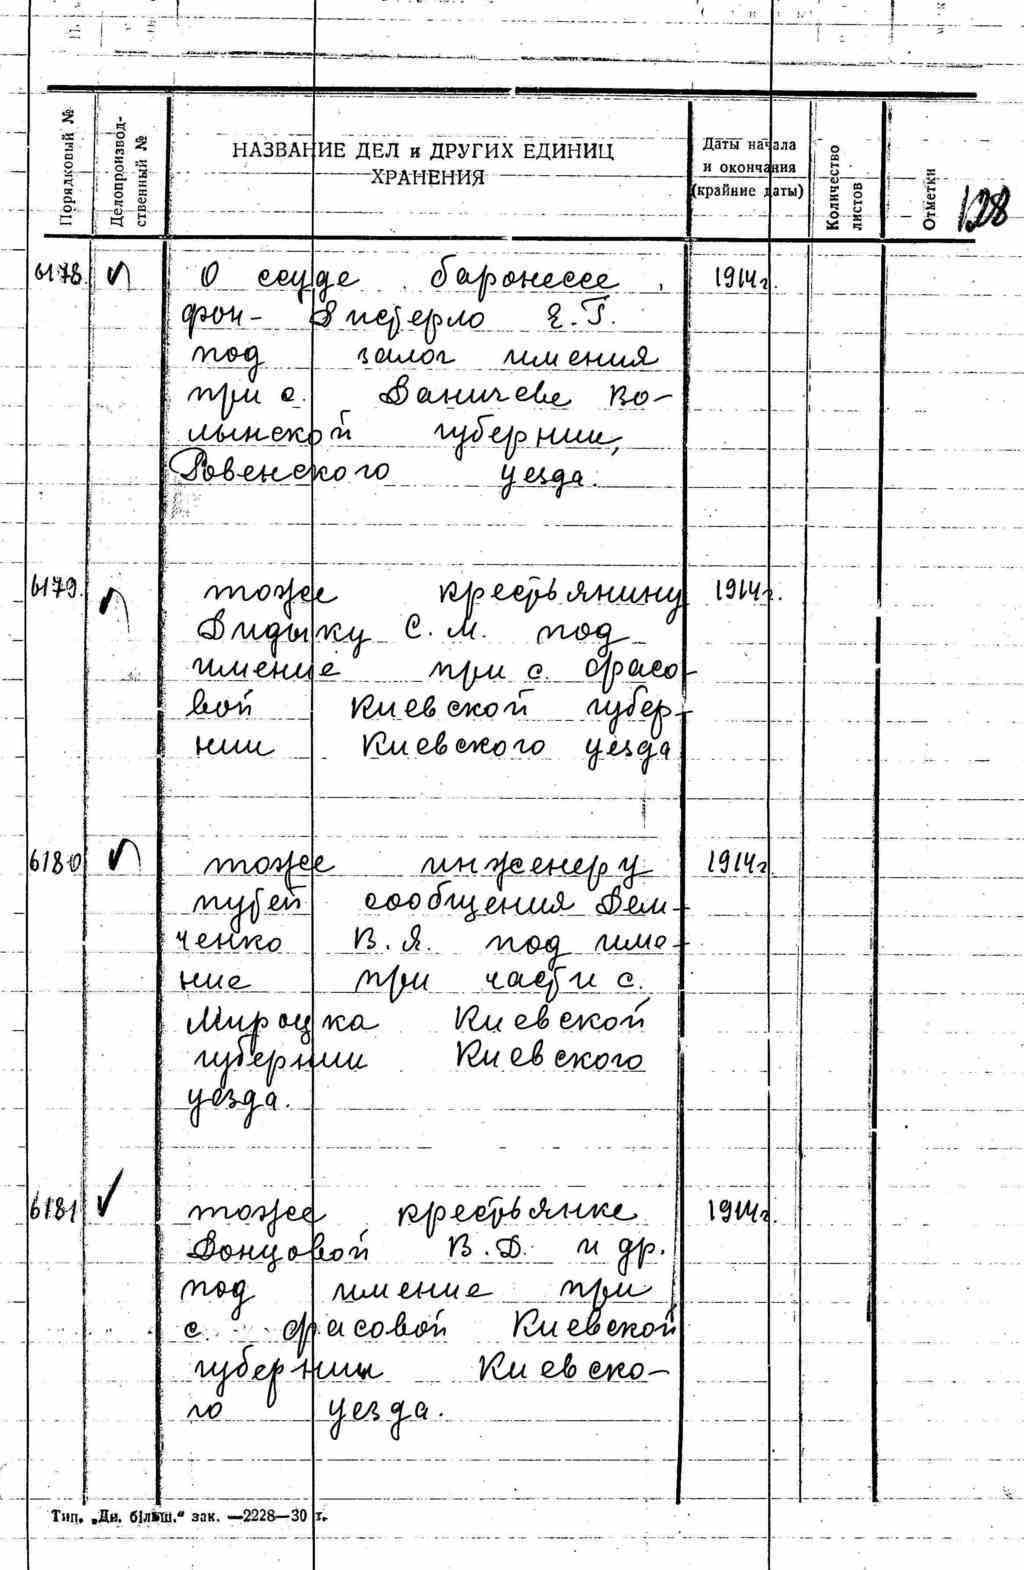 Порядковый №
Делопроизвод-
ственный №
НАЗВАНИЕ ДЕЛ и ДРУГИХ ЕДИНИЦ
ХРАНЕНИЯ
Даты начала
и окончания
(крайние даты)
Количество
листов
Отметки
128
6178. О ссуде баронессе 1914г.
фон-
Е. Г.
под залог имения
при с. Даничеве Во-
лынской губернии,
Ровенского уезда.
6179. тоже крестьянину 1914г.
Дидыку С. М. под
имение при с. Фасо-
вой Киевской губер-
нии Киевского уезда
6180 тоже инженеру 1914г.
путей сообщения Дем-
ченко В. Я. под име-
ние при части с.
Мироцка Киевской
губернии Киевского
уезда.
6181 тоже крестьянке 1914г.
Донцовой В. Д. и др.
под имение при
с. Фасовой Киевской
губернии Киевско-
го уезда.
Тип. „Дн. більш.“ зак. —2228—30 г.